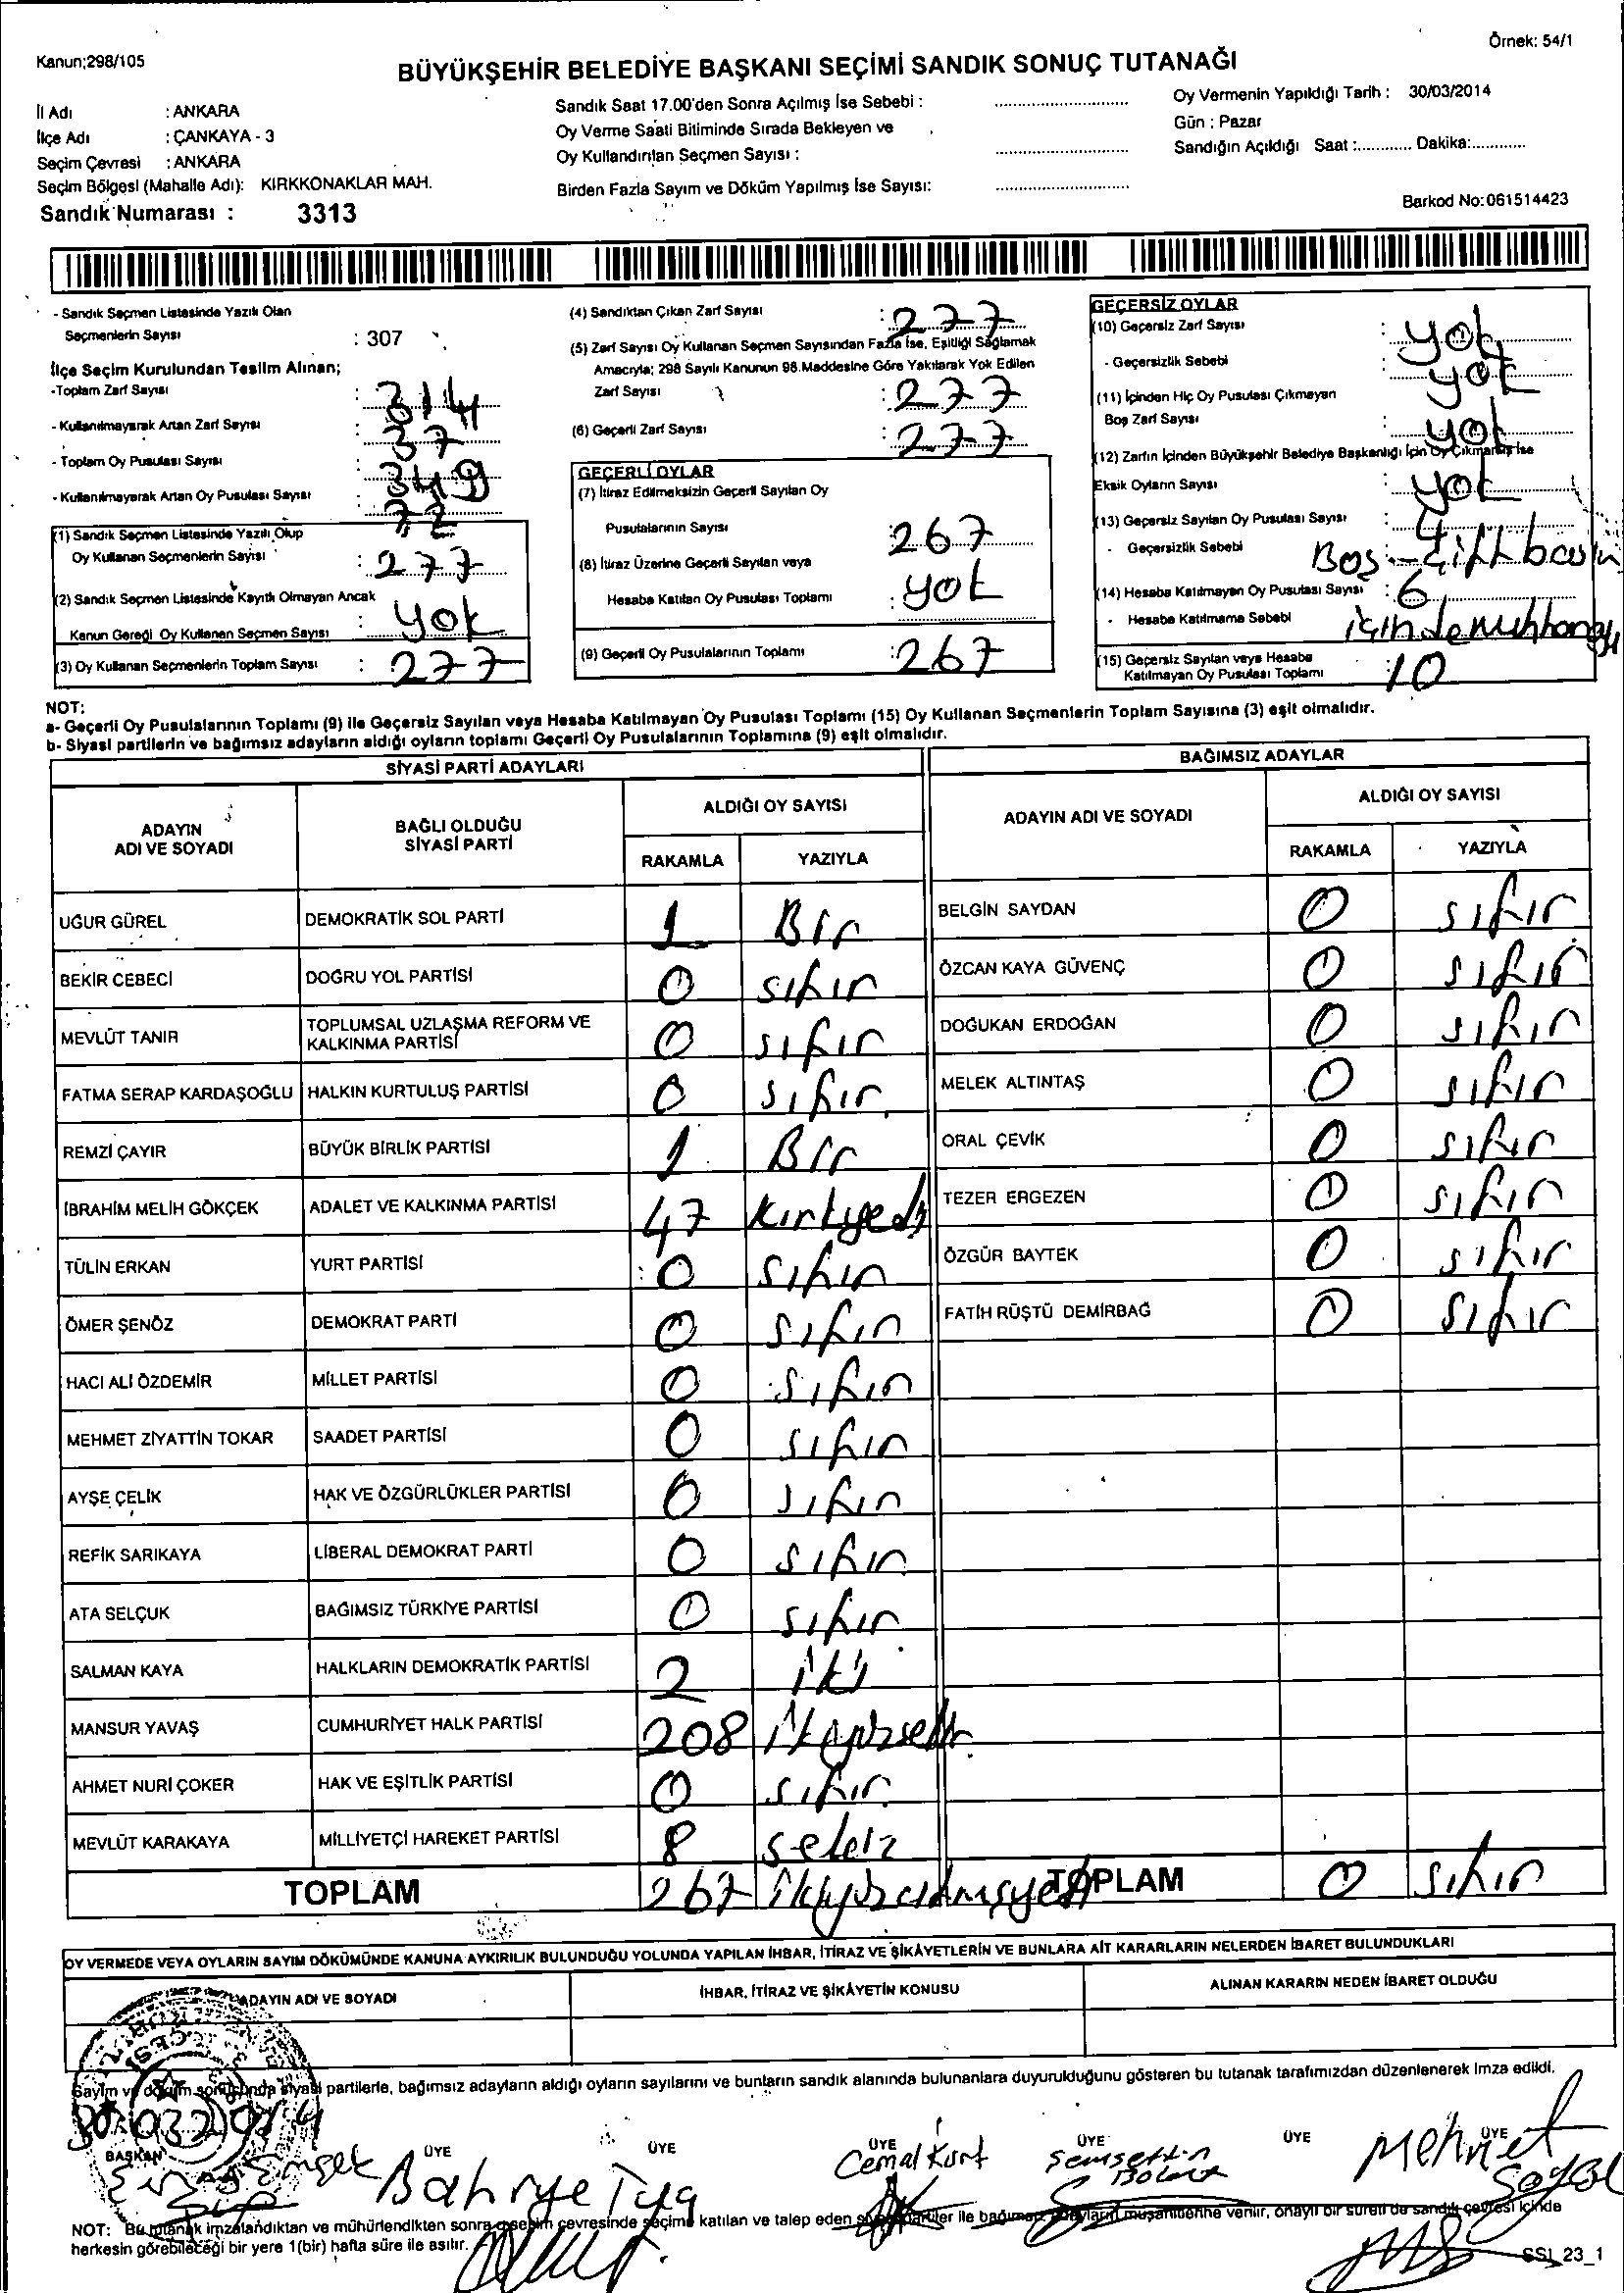 Örnek: 54/1
Kanun;298/105
BÜYÜKŞEHİR BELEDİYE BAŞKANI SEÇİMİ SANDIK SONUÇ TUTANAĞI
İl Adı : ANKARA
İlçe Adı : ÇANKAYA - 3
Seçim Çevresi : ANKARA
Seçim Bölgesi (Mahalle Adı): KIRKKONAKLAR MAH.
Sandık Numarası : 3313
Sandık Saat 17.00'den Sonra Açılmış İse Sebebi :
Oy Verme Saati Bitiminde Sırada Bekleyen ve
Oy Kullandırılan Seçmen Sayısı :
Birden Fazla Sayım ve Döküm Yapılmış İse Sayısı:
Oy Vermenin Yapıldığı Tarih : 30/03/2014
Gün : Pazar
Sandığın Açıldığı Saat :............ Dakika:............
Barkod No:061514423
- Sandık Seçmen Listesinde Yazılı Olan
Seçmenlerin Sayısı : 307
İlçe Seçim Kurulundan Teslim Alınan;
-Toplam Zarf Sayısı : 314
- Kullanılmayarak Artan Zarf Sayısı : 37
- Toplam Oy Pusulası Sayısı : 349
- Kullanılmayarak Artan Oy Pusulası Sayısı : 72
(1) Sandık Seçmen Listesinde Yazılı Olup
Oy Kullanan Seçmenlerin Sayısı : 277
(2) Sandık Seçmen Listesinde Kayıtlı Olmayan Ancak
Kanun Gereği Oy Kullanan Seçmen Sayısı : yok
(3) Oy Kullanan Seçmenlerin Toplam Sayısı : 277
(4) Sandıktan Çıkan Zarf Sayısı : 277
(5) Zarf Sayısı Oy Kullanan Seçmen Sayısından Fazla İse, Eşitliği Sağlamak
Amacıyla; 298 Sayılı Kanunun 98.Maddesine Göre Yakılarak Yok Edilen
Zarf Sayısı : 277
(6) Geçerli Zarf Sayısı : 277
GEÇERLİ OYLAR
(7) İtiraz Edilmeksizin Geçerli Sayılan Oy
Pusulalarının Sayısı : 267
(8) İtiraz Üzerine Geçerli Sayılan veya
Hesaba Katılan Oy Pusulası Toplamı : yok
(9) Geçerli Oy Pusulalarının Toplamı : 267
GEÇERSİZ OYLAR
(10) Geçersiz Zarf Sayısı : yok
- Geçersizlik Sebebi : yok
(11) İçinden Hiç Oy Pusulası Çıkmayan
Boş Zarf Sayısı : yok
(12) Zarfın İçinden Büyükşehir Belediye Başkanlığı İçin Oy Çıkmamış İse
Eksik Oyların Sayısı : yok
(13) Geçersiz Sayılan Oy Pusulası Sayısı : 4
- Geçersizlik Sebebi Boş - Çift
(14) Hesaba Katılmayan Oy Pusulası Sayısı : 6
- Hesaba Katılmama Sebebi
(15) Geçersiz Sayılan veya Hesaba
Katılmayan Oy Pusulası Toplamı : 10
NOT:
a- Geçerli Oy Pusulalarının Toplamı (9) ile Geçersiz Sayılan veya Hesaba Katılmayan Oy Pusulası Toplamı (15) Oy Kullanan Seçmenlerin Toplam Sayısına (3) eşit olmalıdır.
b- Siyasi partilerin ve bağımsız adayların aldığı oyların toplamı Geçerli Oy Pusulalarının Toplamına (9) eşit olmalıdır.
SİYASİ PARTİ ADAYLARI
ADAYIN ADI VE SOYADI BAĞLI OLDUĞU SİYASİ PARTİ ALDIĞI OY SAYISI
RAKAMLA YAZIYLA
UĞUR GÜREL DEMOKRATİK SOL PARTİ 1 Bir
BEKİR CEBECİ DOĞRU YOL PARTİSİ 0 sıfır
MEVLÜT TANIR TOPLUMSAL UZLAŞMA REFORM VE KALKINMA PARTİSİ 0 sıfır
FATMA SERAP KARDAŞOĞLU HALKIN KURTULUŞ PARTİSİ 0 sıfır
REMZİ ÇAYIR BÜYÜK BİRLİK PARTİSİ 1 Bir
İBRAHİM MELİH GÖKÇEK ADALET VE KALKINMA PARTİSİ 47 kırkyedi
TÜLİN ERKAN YURT PARTİSİ 0 sıfır
ÖMER ŞENÖZ DEMOKRAT PARTİ 0 sıfır
HACI ALİ ÖZDEMİR MİLLET PARTİSİ 0 sıfır
MEHMET ZİYATTİN TOKAR SAADET PARTİSİ 0 sıfır
AYŞE ÇELİK HAK VE ÖZGÜRLÜKLER PARTİSİ 0 sıfır
REFİK SARIKAYA LİBERAL DEMOKRAT PARTİ 0 sıfır
ATA SELÇUK BAĞIMSIZ TÜRKİYE PARTİSİ 0 sıfır
SALMAN KAYA HALKLARIN DEMOKRATİK PARTİSİ 2 iki
MANSUR YAVAŞ CUMHURİYET HALK PARTİSİ 208 ikiyüzsekiz
AHMET NURİ ÇOKER HAK VE EŞİTLİK PARTİSİ 0 sıfır
MEVLÜT KARAKAYA MİLLİYETÇİ HAREKET PARTİSİ 8 sekiz
TOPLAM 267 ikiyüzaltmışyedi
BAĞIMSIZ ADAYLAR
ADAYIN ADI VE SOYADI ALDIĞI OY SAYISI
RAKAMLA YAZIYLA
BELGİN SAYDAN 0 sıfır
ÖZCAN KAYA GÜVENÇ 0 sıfır
DOĞUKAN ERDOĞAN 0 sıfır
MELEK ALTINTAŞ 0 sıfır
ORAL ÇEVİK 0 sıfır
TEZER ERGEZEN 0 sıfır
ÖZGÜR BAYTEK 0 sıfır
FATİH RÜŞTÜ DEMİRBAĞ 0 sıfır
TOPLAM 0 sıfır
OY VERMEDE VEYA OYLARIN SAYIM DÖKÜMÜNDE KANUNA AYKIRILIK BULUNDUĞU YOLUNDA YAPILAN İHBAR, İTİRAZ VE ŞİKÂYETLERİN VE BUNLARA AİT KARARLARIN NELERDEN İBARET BULUNDUKLARI
ADAYIN ADI VE SOYADI İHBAR, İTİRAZ VE ŞİKÂYETİN KONUSU ALINAN KARARIN NEDEN İBARET OLDUĞU
Sayım ve döküm sonucunda siyasi partilerle, bağımsız adayların aldığı oyların sayılarını ve bunların sandık alanında bulunanlara duyurulduğunu gösteren bu tutanak tarafımızdan düzenlenerek imza edildi.
30.03.2014
BAŞKAN ÜYE ÜYE ÜYE ÜYE ÜYE ÜYE
Bahriye Cemal Kurt Şemsettin Mehmet
NOT: Bu tutanak imzalandıktan ve mühürlendikten sonra seçim çevresinde seçime katılan ve talep eden siyasi partiler ile bağımsız adayların müşahitlerine verilir, onaylı bir sureti de sandık çevresi içinde
herkesin görebileceği bir yere 1(bir) hafta süre ile asılır.
SSI_23_1